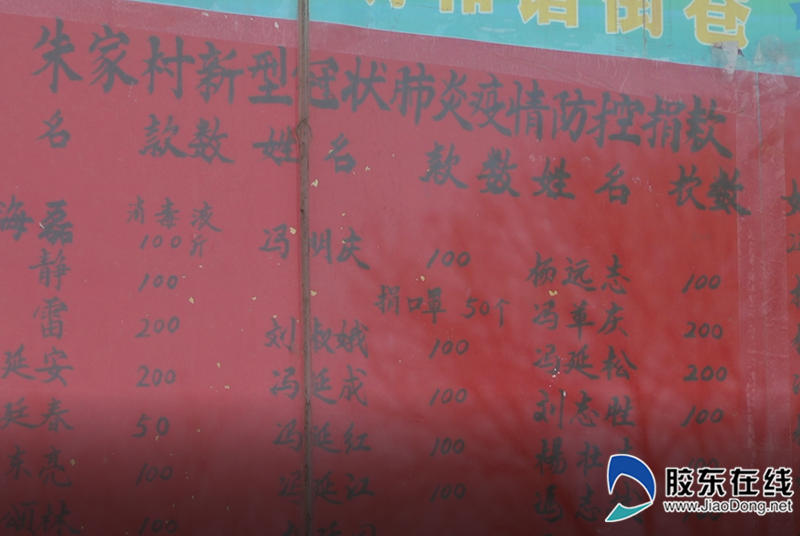 朱家村新型冠状肺炎疫情防控捐款
名 款数 姓名 款数 姓名 款数
海磊 消毒液100斤 冯明庆 100 杨远志 100
静 100 捐口罩 50个 冯革庆 200
雷 200 刘叔娥 100 冯延松 200
延安 200 冯延成 100 刘志胜 100
廷春 50 冯延红 100 杨壮
东亮 100 冯延江 100 冯志
颂林 100
胶东在线
www.JiaoDong.net